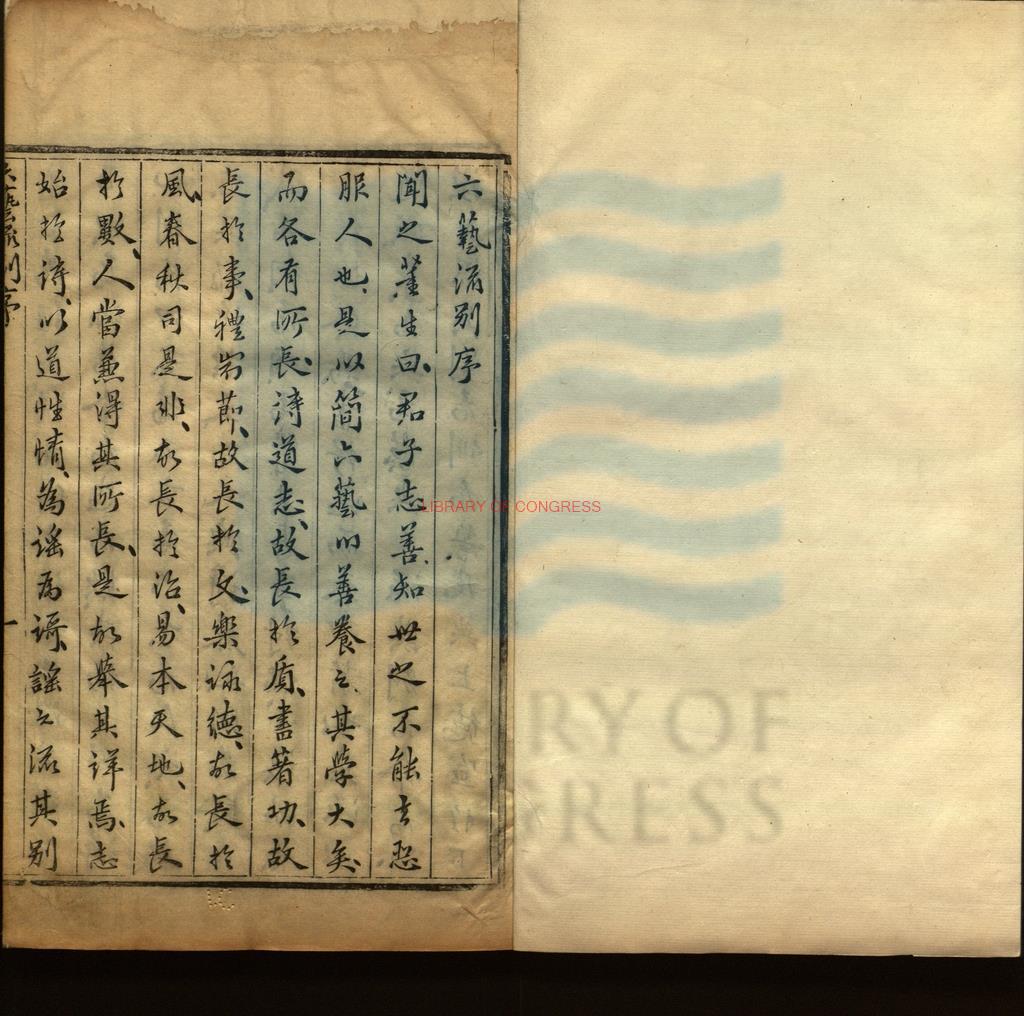 六藝流别序
聞之董生曰君子志善知世之不能去惡
服人也是以簡六藝以善養之其學大矣
而各有所長詩道志故長於質書著功故
長於事禮制節故長於文樂詠德故長於
風春秋司是非故長於治易本天地故長
於數人當兼得其所長是故舉其詳焉志
始於詩以道性情為謡為謌謡之流其别
六藝流别序
一
LIBRARY OF CONGRESS
RY OF
GRESS